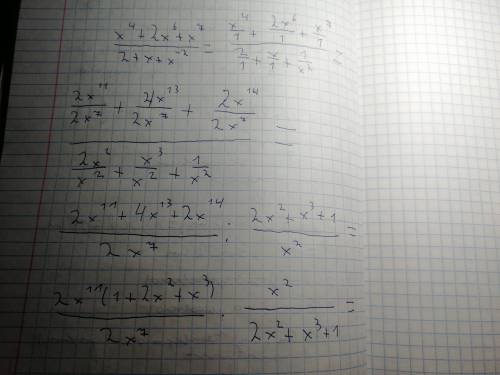 (x^4 + 2x^6 + x^7)/(2 + x + x^-2) = (x^4/1 + 2x^6/1 + x^7/1)/(2/1 + x/1 + 1/x^2) =
(2x^11/2x^7 + 4x^13/2x^7 + 2x^14/2x^7)/(2x^2/x^2 + x^3/x^2 + 1/x^2) =
(2x^11 + 4x^13 + 2x^14)/(2x^7) : (2x^2 + x^3 + 1)/(x^2) =
(2x^11(1 + 2x^2 + x^3))/(2x^7) · (x^2)/(2x^2 + x^3 + 1) =